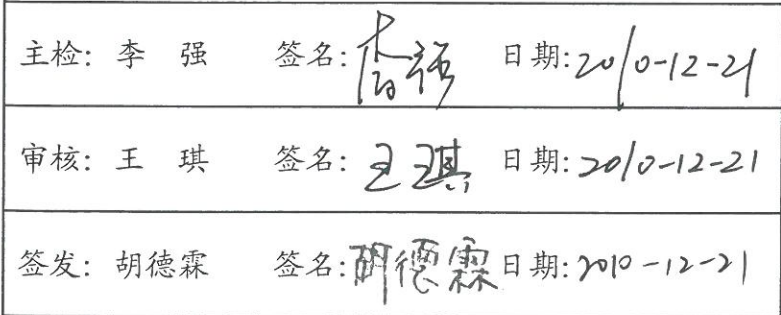 主检: 李 强 签名: 李强 日期: 2010-12-21
审核: 王 琪 签名: 王琪 日期: 2010-12-21
签发: 胡德霖 签名: 胡德霖 日期: 2010-12-21